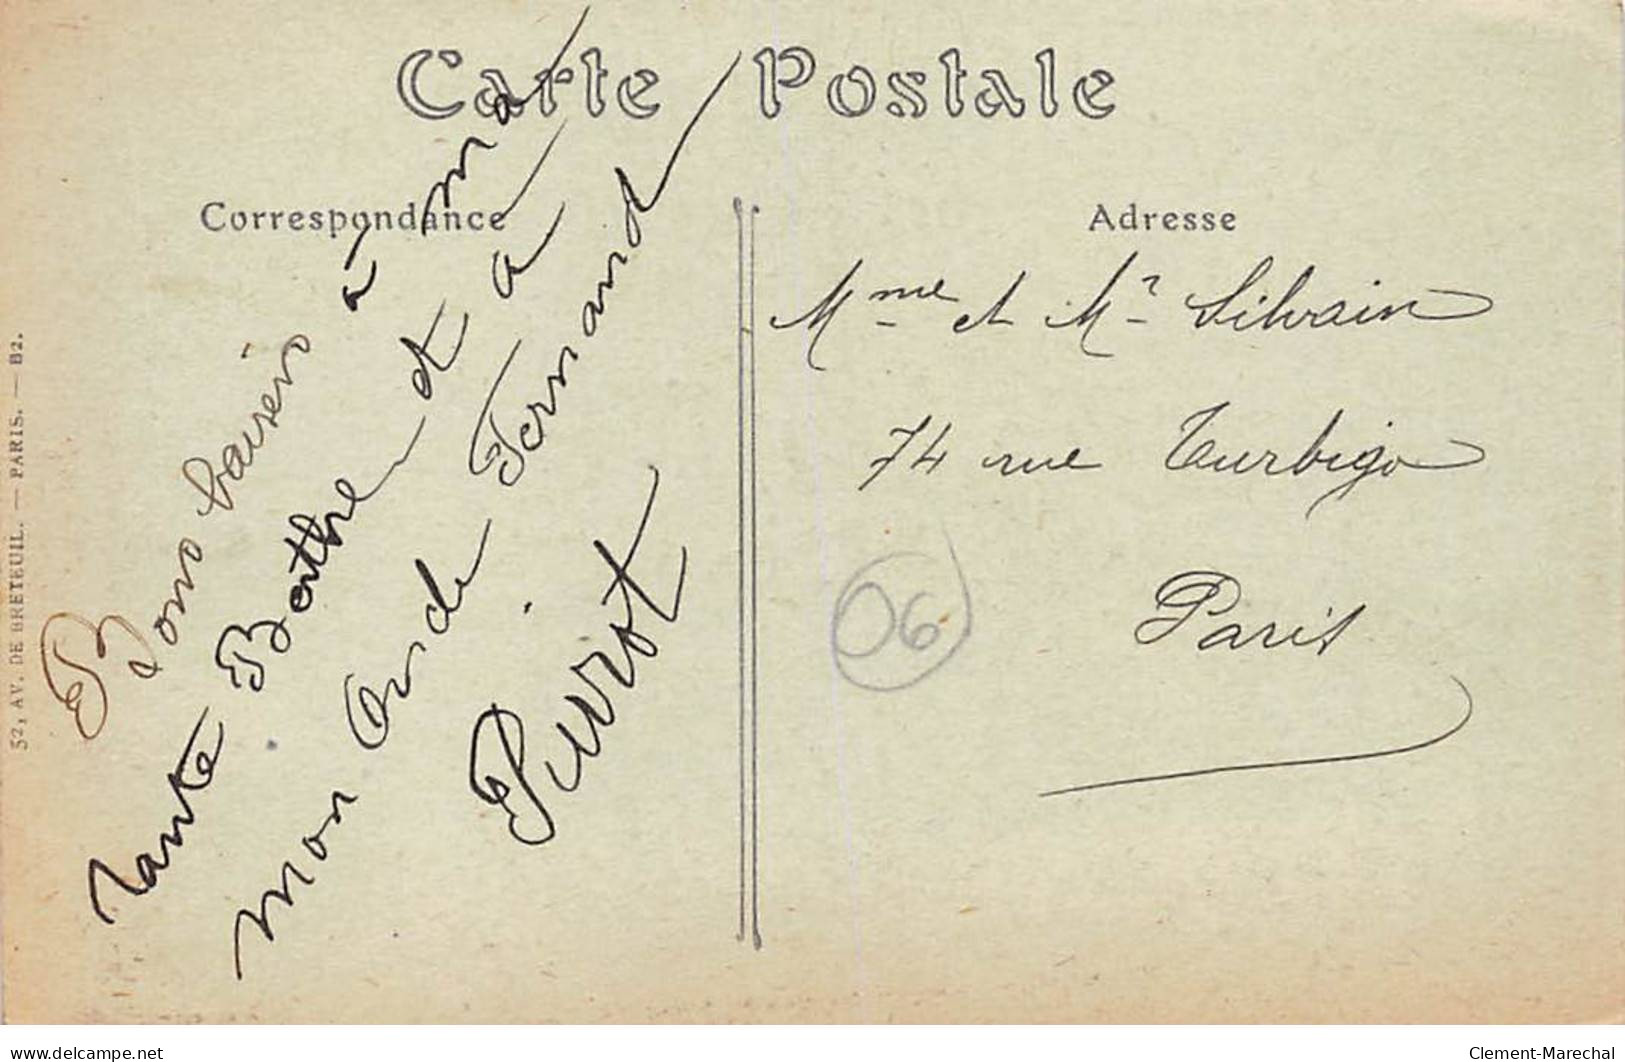 Carte Postale
Correspondance
Bons baisers à ma
tante Berthe et à
mon Oncle Fernand
Pierrot
Adresse
Mme et Mr Silvain
74 rue Turbigo
Paris
06
52, AV. DE BRETEUIL. — PARIS. — B2.
delcampe.net
Clement-Marechal